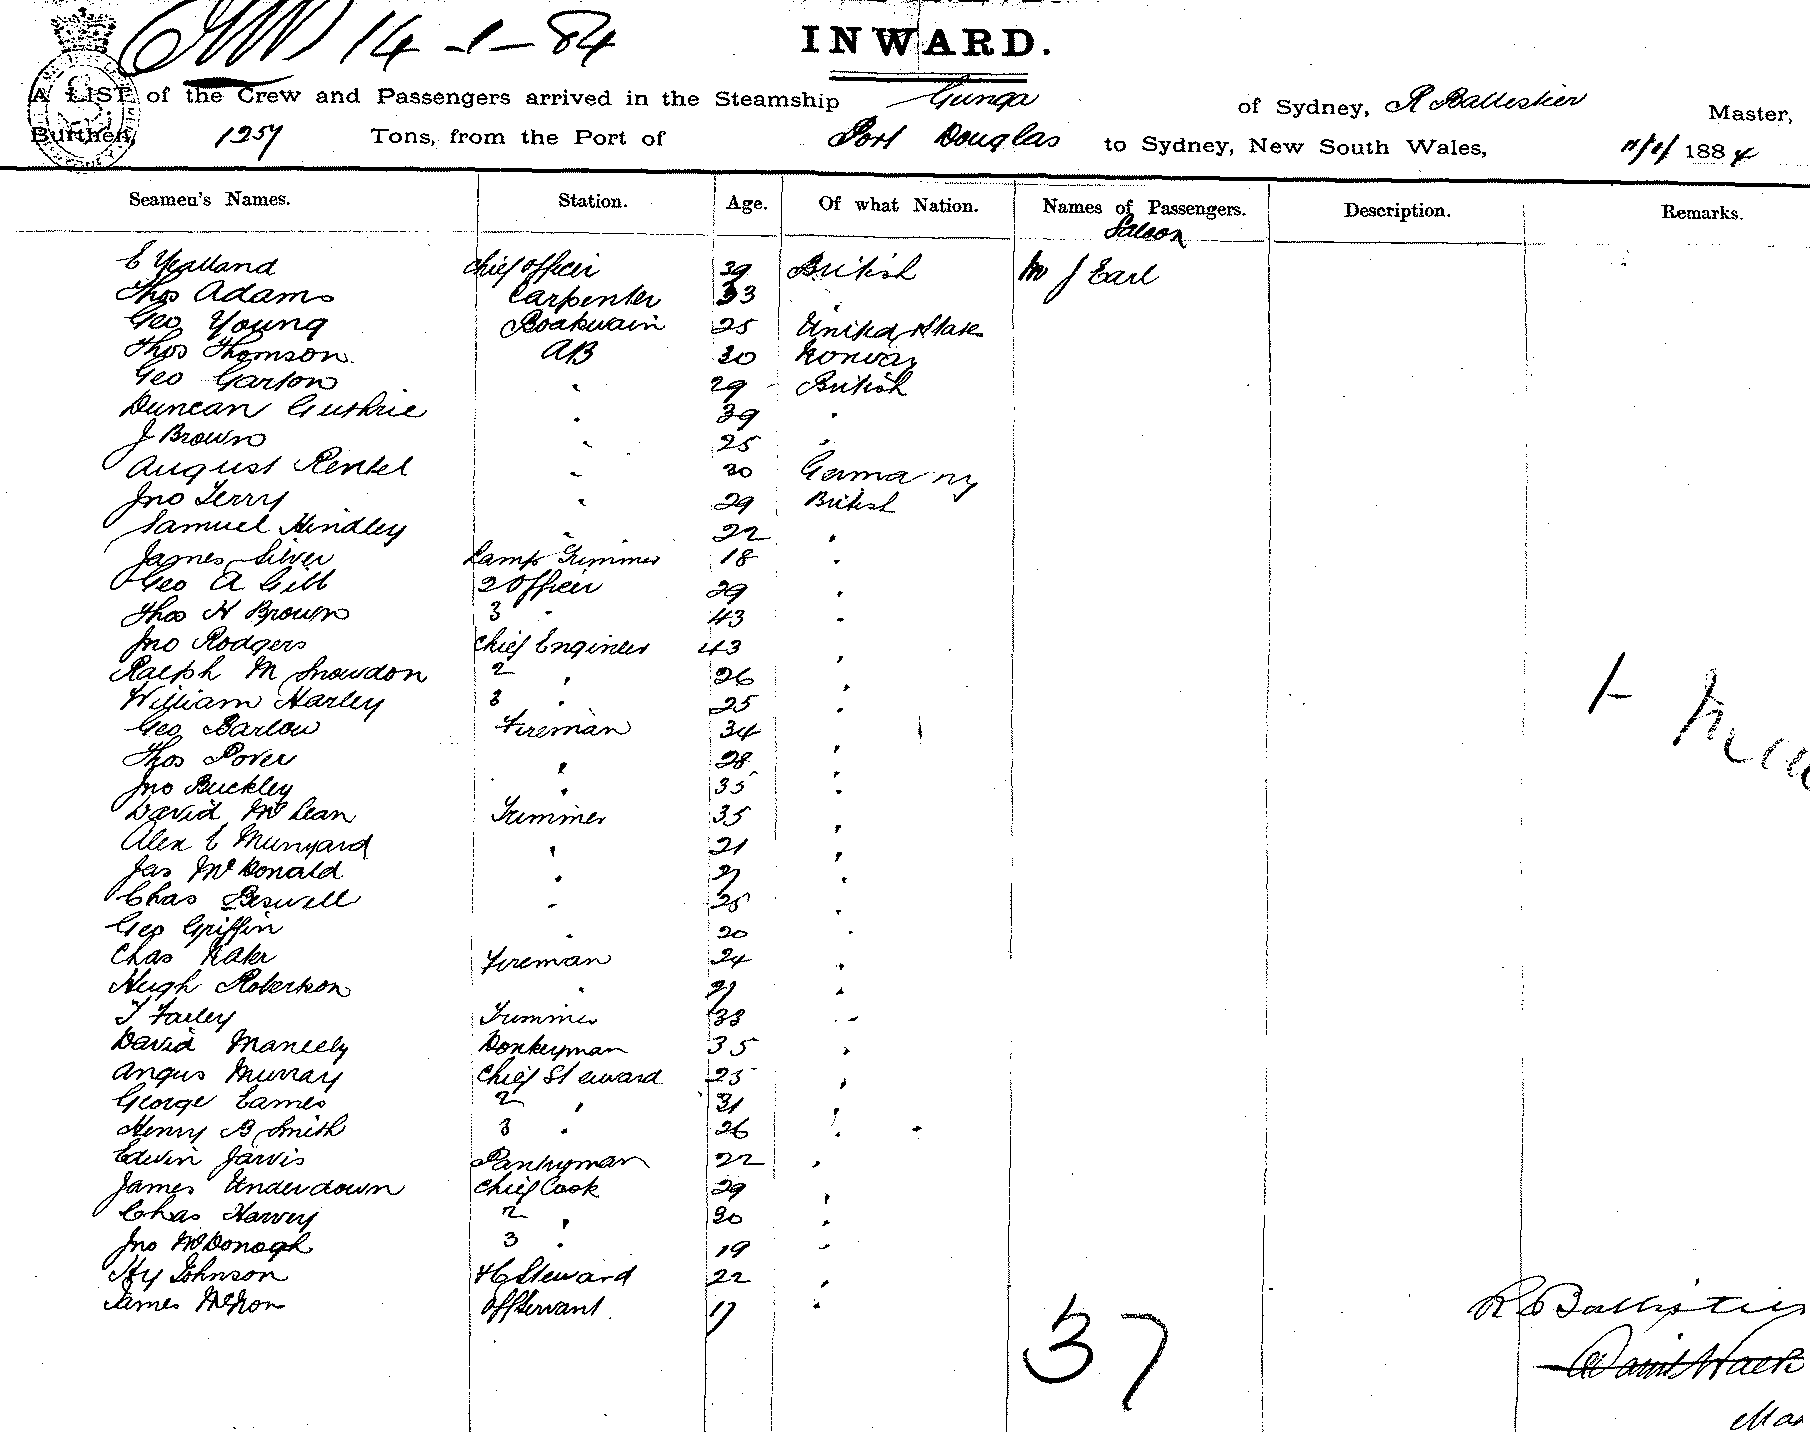 14-1-84
INWARD.
A LIST of the Crew and Passengers arrived in the Steamship Gunga of Sydney, R Ballistier Master,
Burthen, 1257 Tons, from the Port of Port Douglas to Sydney, New South Wales, 11/1/ 1884
Seamen's Names. Station. Age. Of what Nation. Names of Passengers. Description. Remarks.
Saloon
E Yealland Chief Officer 39 British Mr J Earl
Thos Adams Carpenter 33 "
Geo Young Boatswain 25 United State
Thos Thomson AB 30 Norway
Geo Garton " 29 British
Duncan Guthrie " 39 "
J Brown " 25 "
August Rentel " 30 Germany
Jno Terry " 29 British
Samuel Hindley " 22 "
James Silver Lamp Trimmer 18 "
Geo A Gibb 2 Officer 29 "
Thos H Brown 3 " 43 "
Jno Rodgers Chief Engineer 43 "
Ralph M Snowdon 2 " 26 "
William Harley 3 " 25 "
Geo Barlow Fireman 34 "
Thos Power " 28 "
Jno Buckley " 35 "
David McLean Trimmer 35 "
Alex E Munyard " 21 "
Jas McDonald " 27 "
Chas Beswell " 25 "
Geo Griffin " 20 "
Chas Kake Fireman 24 "
Hugh Robertson " 27 "
T Farley Trimmer 33 "
David Maneely Donkeyman 35 "
Angus Murray Chief Steward 25 "
George Eames 2 " 31 "
Henry B Smith 3 " 26 "
Edwin Jarvis Pantryman 22 "
James Underdown Chief Cook 29 "
Chas Harvey 2 " 30 "
Jno McDonogh 3 " 19 "
Hy Johnson FC Steward 22 "
James Off Servant 17 "
37
R Ballistier